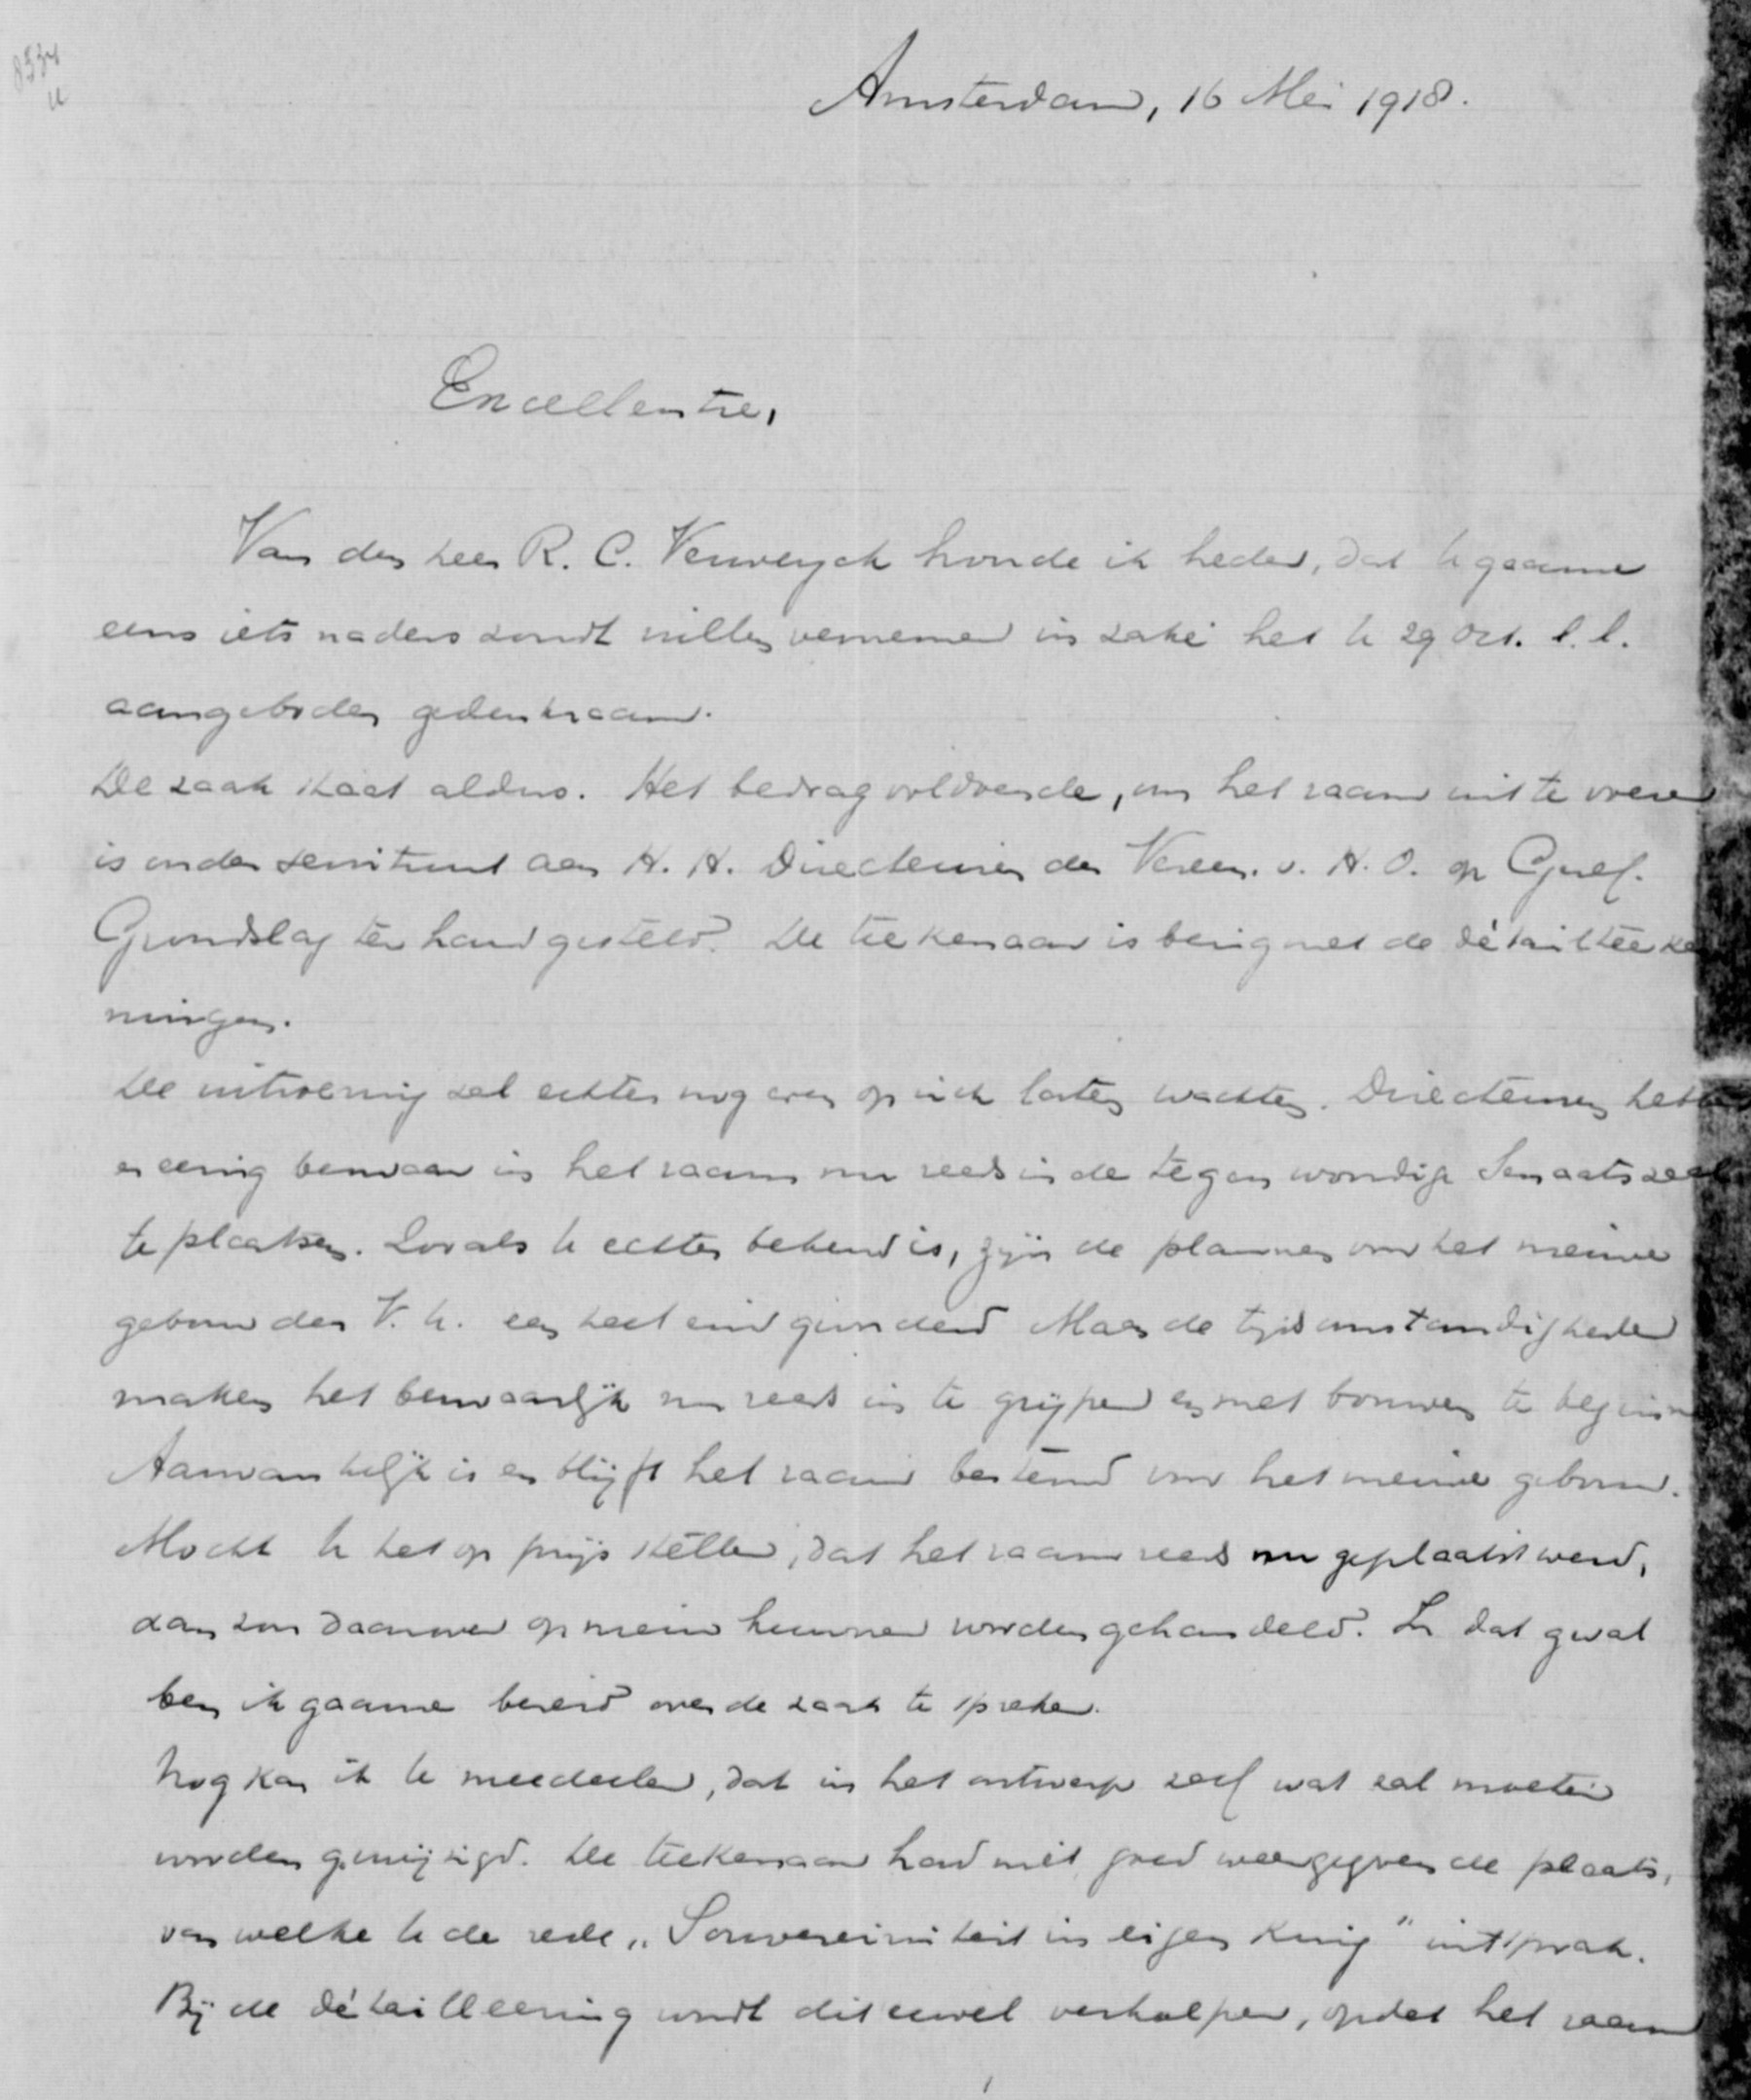 8534
U
Amsterdam, 16 Mei 1918.
Excellentie,
Van den heer R. C. Verweyck hoorde ik heden, dat U gaarne
eens iets naders zoudt willen vernemen in zake het U 29 Oct. l.l.
aangeboden gedenkraam.
De zaak staat aldus. Het bedrag voldoende, om het raam uit te voeren
is onder servituut aan H. H. Directeuren der Vereen. v. H. O. op Geref.
Grondslag ter hand gesteld. De teekenaar is bezig met de détailteeke
ningen.
De uitvoering zal echter nog even op zich laten wachten. Directeuren hebben
er eenig bezwaar in het raam nu reeds in de tegenwoordige Senaatszaal
te plaatsen. Zooals U echter bekend is, zijn de plannen voor het nieuwe
gebouw der V. U. een heel eind gevorderd. Maar de tijdsomstandigheden
maken het bezwaarlijk nu reeds in te grijpen en met bouwen te beginnen
Aanvankelijk is en blijft het raam bestemd voor het nieuwe gebouw.
Mocht U het op prijs stellen, dat het raam reeds nu geplaatst werd,
dan zou daarover opnieuw kunnen worden gehandeld. In dat geval
ben ik gaarne bereid over de zaak te spreken.
Nog kan ik U meedeelen, dat in het ontwerp zelf wat zal moeten
worden gewijzigd. De teekenaar had niet goed weergegeven de plaats,
van welke U de rede „Souvereiniteit in eigen Kring" uitsprak.
Bij de détailleering wordt dit euvel verholpen, opdat het raam